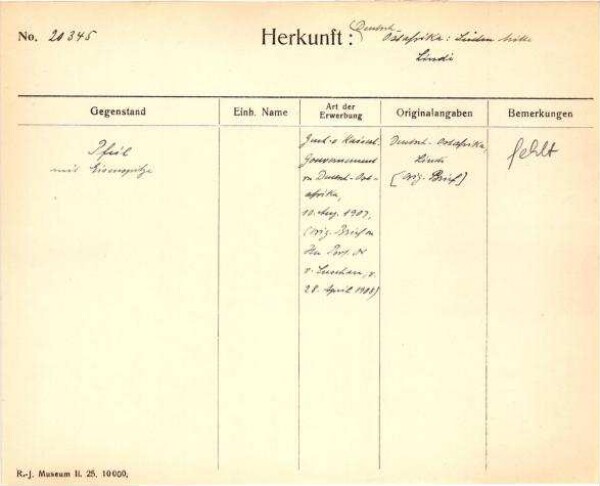 No. 20345
Herkunft: Deutsch
Ostafrika: Süden
Lindi
Gegenstand
Einh. Name
Art der
Erwerbung
Originalangaben
Bemerkungen
Pfeil
mit Eisenspitze
Kaiserl.
Gouvernement
v. Deutsch-Ost-
afrika,
10. Aug. 1907,
(orig. Brief an
Herr Prof. Dr
v. Luschan, v.
28. April 1908)
Deutsch-Ostafrika,
Lindi
[orig. Brief]
fehlt
R.-J. Museum II. 25. 10000.